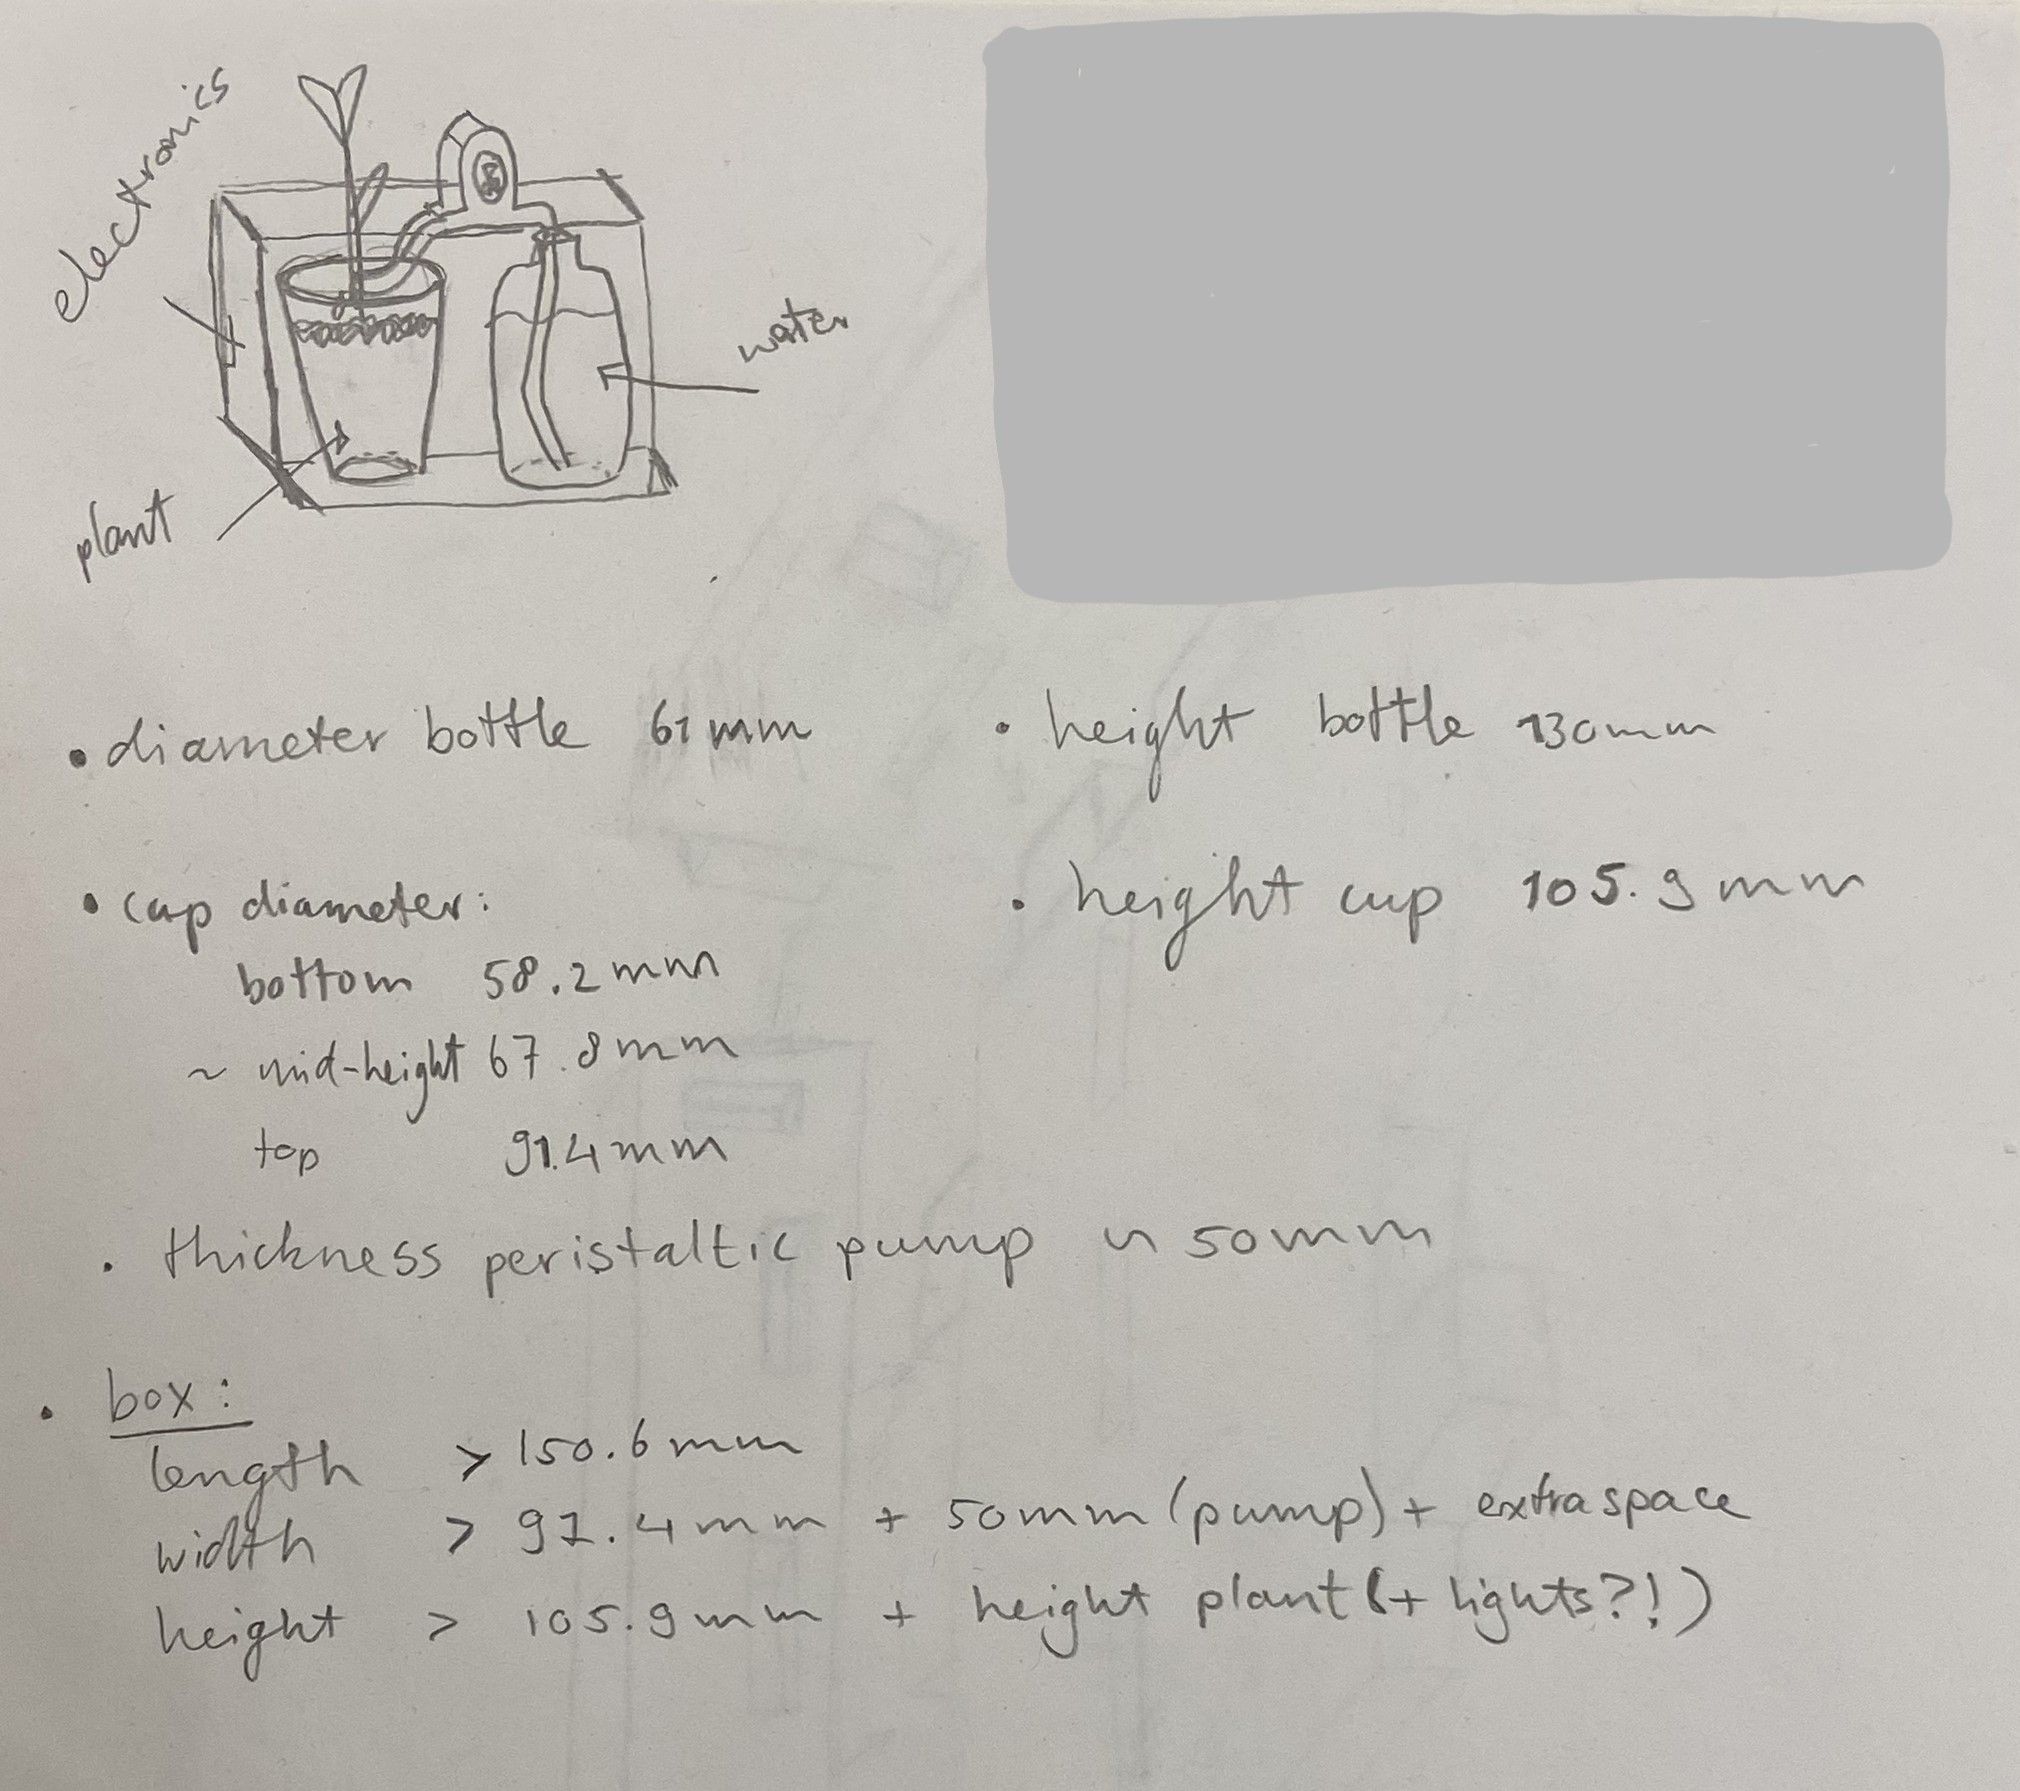 electronics
water
plant
• diameter bottle 61mm
• height bottle 130mm
• cup diameter:
bottom 58.2mm
~ mid-height 67.8mm
top 91.4mm
• height cup 105.9mm
• thickness peristaltic pump ~ 50mm
• box:
length > 150.6mm
width > 91.4mm + 50mm (pump) + extra space
height > 105.9mm + height plant (+ lights?!)